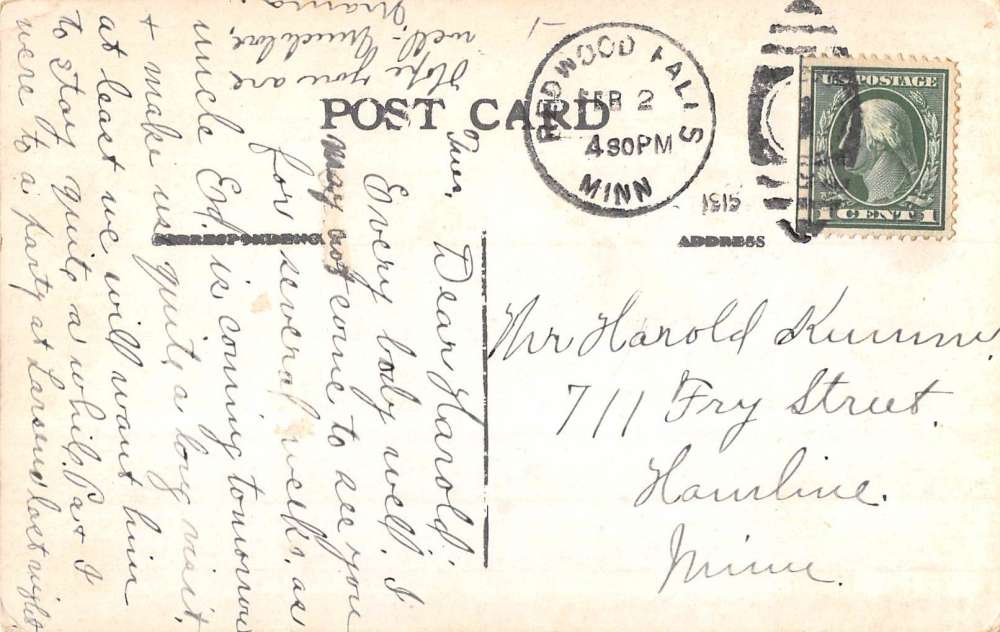 POST CARD
CORRESPONDENCE
ADDRESS
REDWOOD FALLS
FEB 2
430PM
MINN
1915
U.S. POSTAGE
1 CENT 1
Tues.
Dear Harold.
Every body well. I
may not come to see you
for several weeks, as
uncle Ed. is coming tomorrow
+ make us quite a long visit.
at least we will want him
to stay quite a while. Pa + I
were to a party at Larsens last night
Hope you are
well. Much love,
Mama.
Mr Harold
711 Fry Street.
Hamline.
Minn.